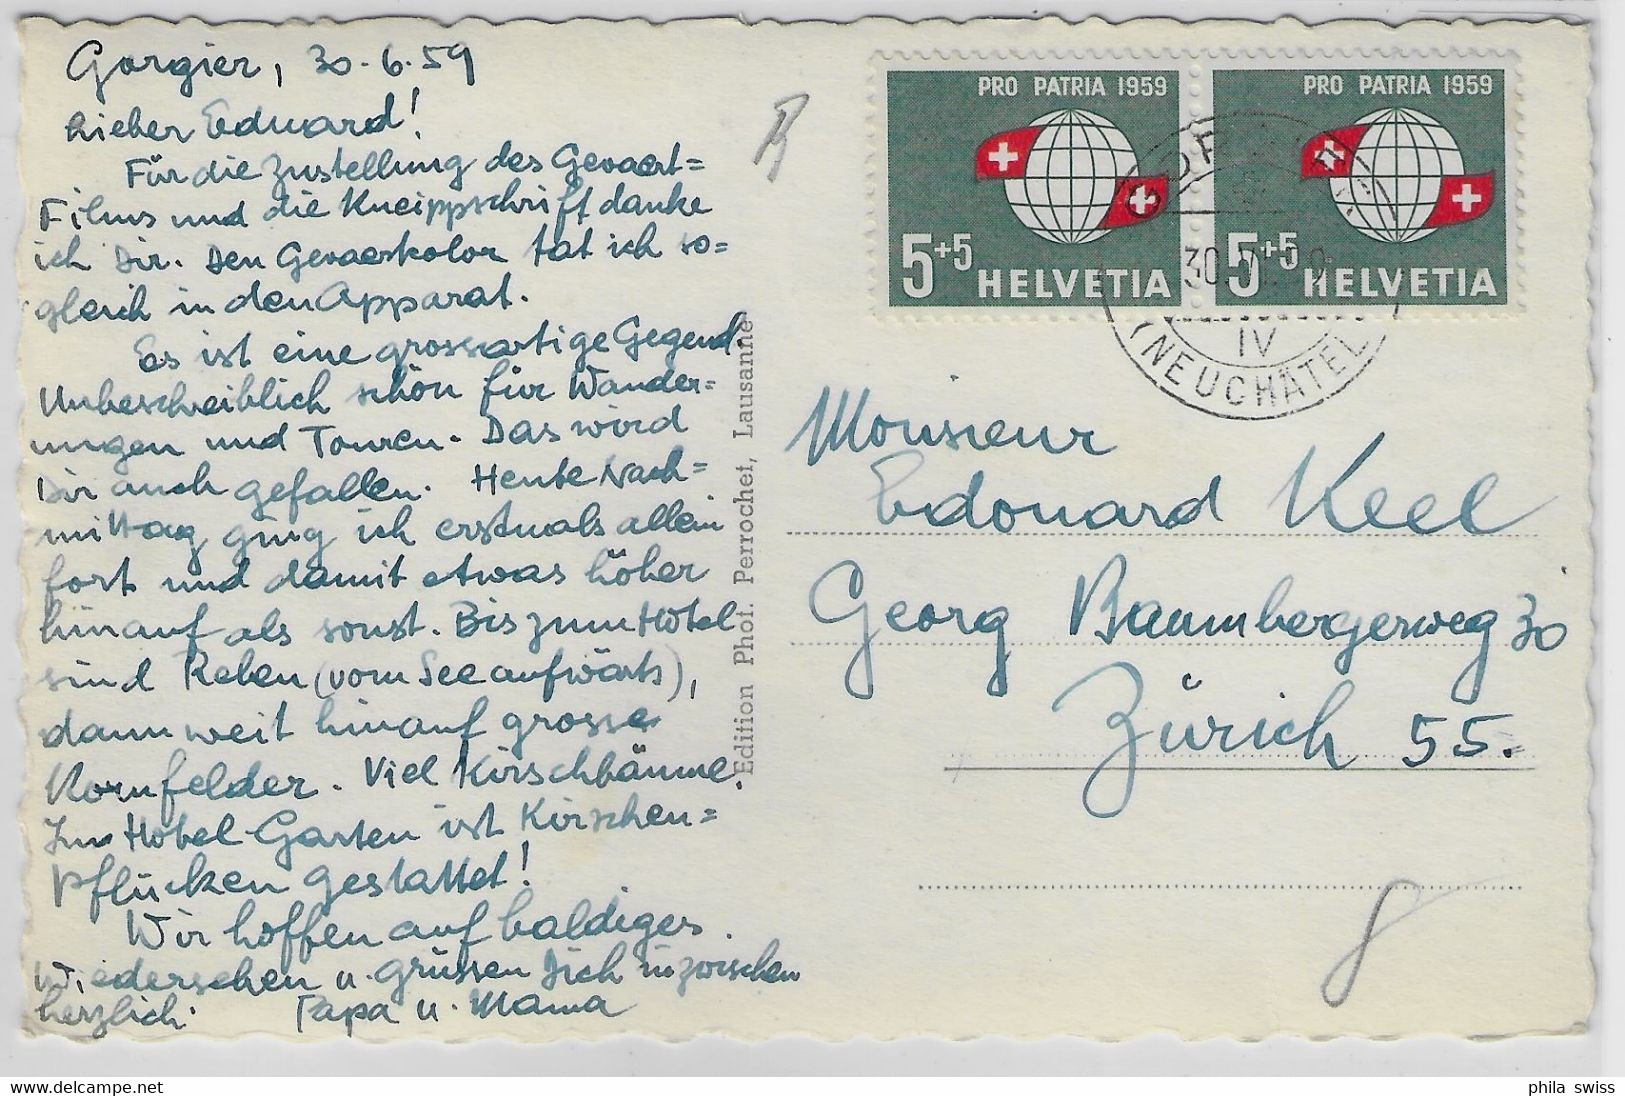 Gorgier, 30.6.59
Lieber Eduard!
Für die Zustellung des Gevaert=
Films und die Kneippschrift danke
ich Dir. Den Gevaertkolor tat ich so=
gleich in den Apparat.
Es ist eine grossartige Gegend.
Unbeschreiblich schön für Wander=
ungen und Touren. Das wird
Dir auch gefallen. Heute Nach=
mittag ging ich erstmals allein
fort und damit etwas höher
hinauf als sonst. Bis zum Hotel
sind Reben (vom See aufwärts),
dann weit hinauf grosse
Kornfelder. Viel Kirschbäume.
Im Hotel-Garten ist Kirschen=
pflücken gestattet!
Wir hoffen auf baldiges
Wiedersehen u. grüssen Dich inzwischen
herzlich. Papa u. Mama
Edition Phot. Perrochet, Lausanne
PRO PATRIA 1959
5+5
HELVETIA
PRO PATRIA 1959
5+5
HELVETIA
30
IV
(NEUCHÂTEL)
Monsieur
Edouard Keel
Georg Baumbergerweg 30
Zürich 55.
phila swiss